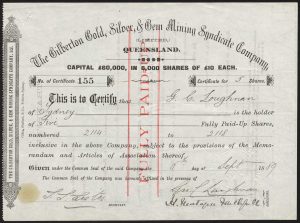 The Gilberton Gold, Silver, & Gem Mining Syndicate Company,
(LIMITED)
QUEENSLAND.
CAPITAL £60,000, IN 6,000 SHARES OF £10 EACH.
No. of Certificate 155
Certificate for 5 Shares.
This is to Certify that G. C. Loughnan
of Sydney is the holder
of Five Fully Paid-Up Shares,
numbered 2114 to 2118
inclusive in the above Company, subject to the provisions of the Memo-
randum and Articles of Association thereof.
Given under the Common Seal of the said Company, the day of Sept 1889
The Common Seal of the Company was affixed in the presence of
FULLY PAID